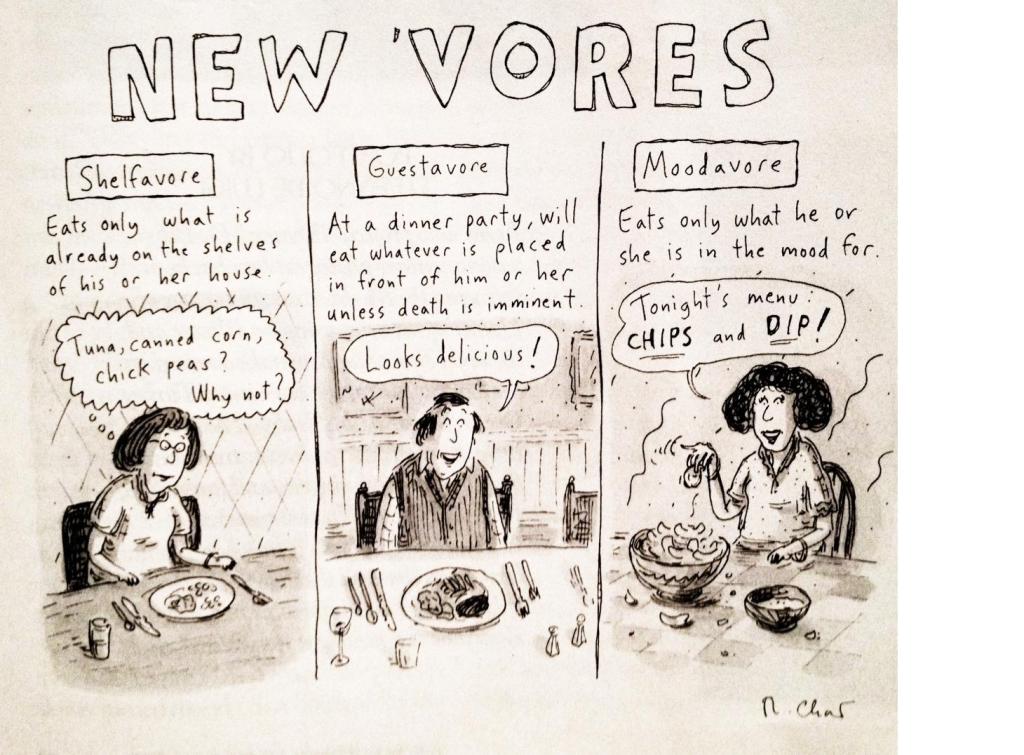 NEW 'VORES
Shelfavore
Eats only what is
already on the shelves
of his or her house.
Tuna, canned corn,
chick peas?
Why not?
Guestavore
At a dinner party, will
eat whatever is placed
in front of him or her
unless death is imminent.
Looks delicious!
Moodavore
Eats only what he or
she is in the mood for.
Tonight's menu:
CHIPS and DIP!
R. Chast